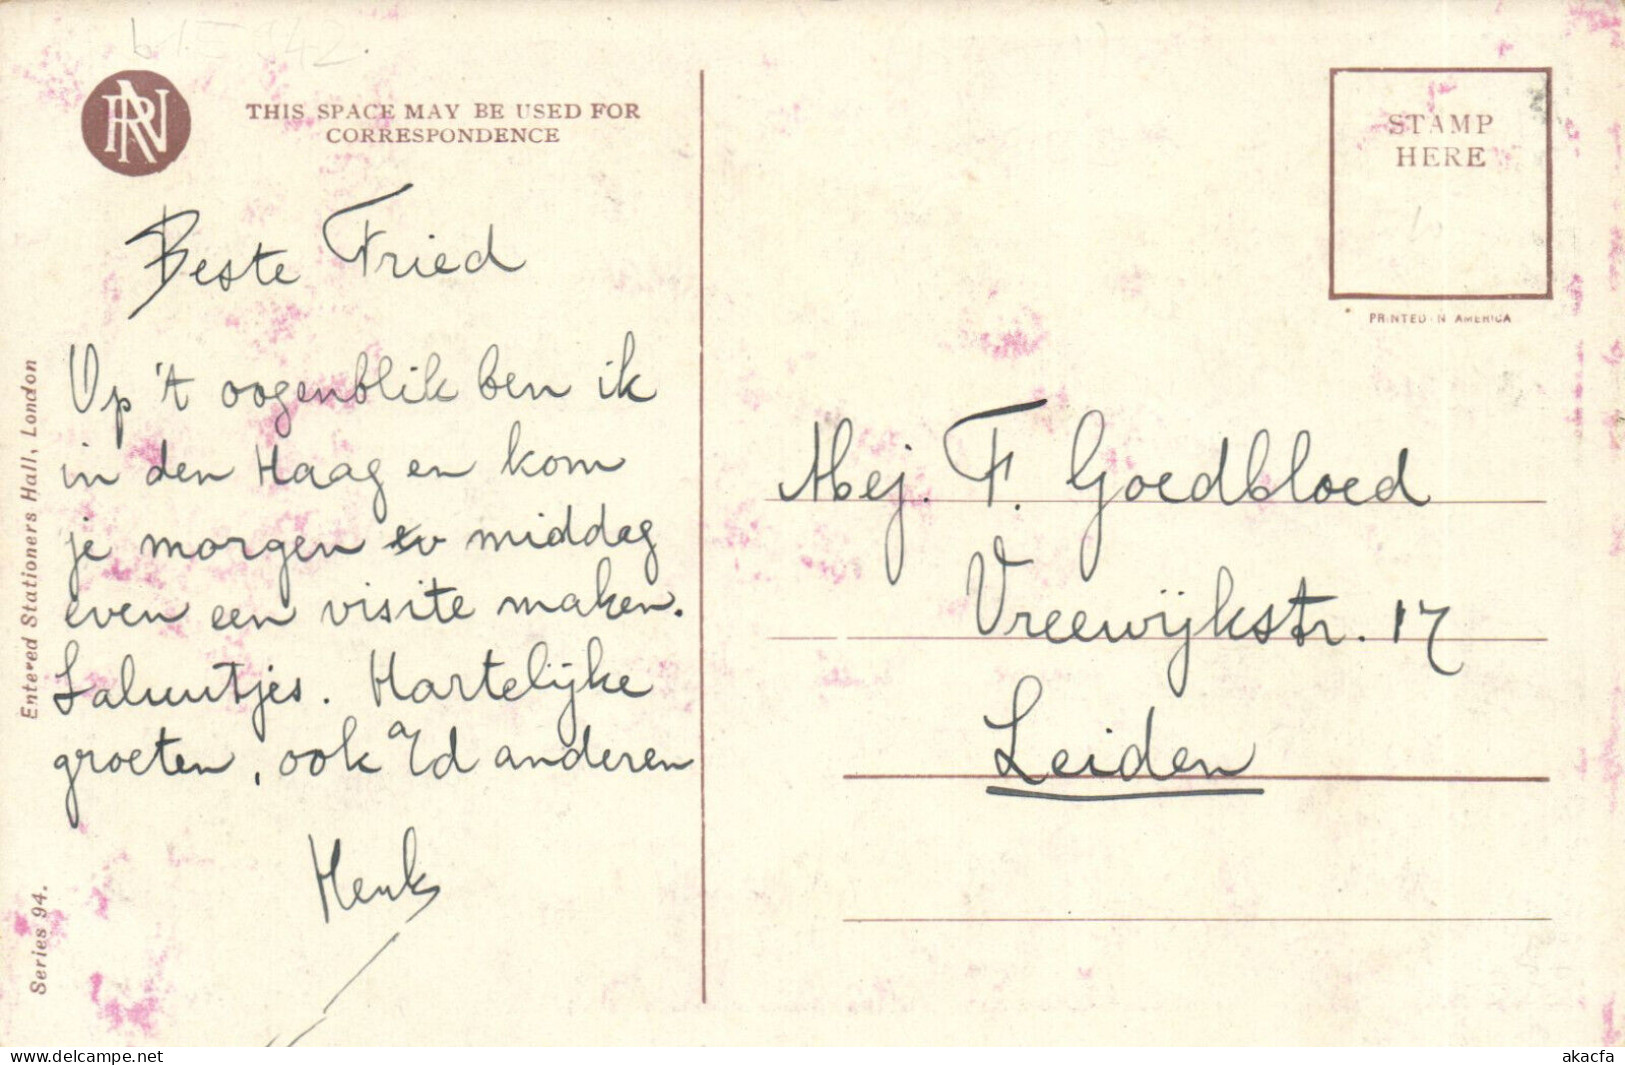 RN
THIS SPACE MAY BE USED FOR
CORRESPONDENCE
Beste Fried
Op 't oogenblik ben ik
in den Haag en kom
je morgen middag
even een visite maken.
Saluutjes. Hartelijke
groeten, ook a/d anderen
Henk
Entered Stationers Hall, London
Series 94.
STAMP
HERE
PRINTED IN AMERICA
Mej. F. Goedbloed
Vreewijkstr. 17
Leiden
www.delcampe.net
akacfa